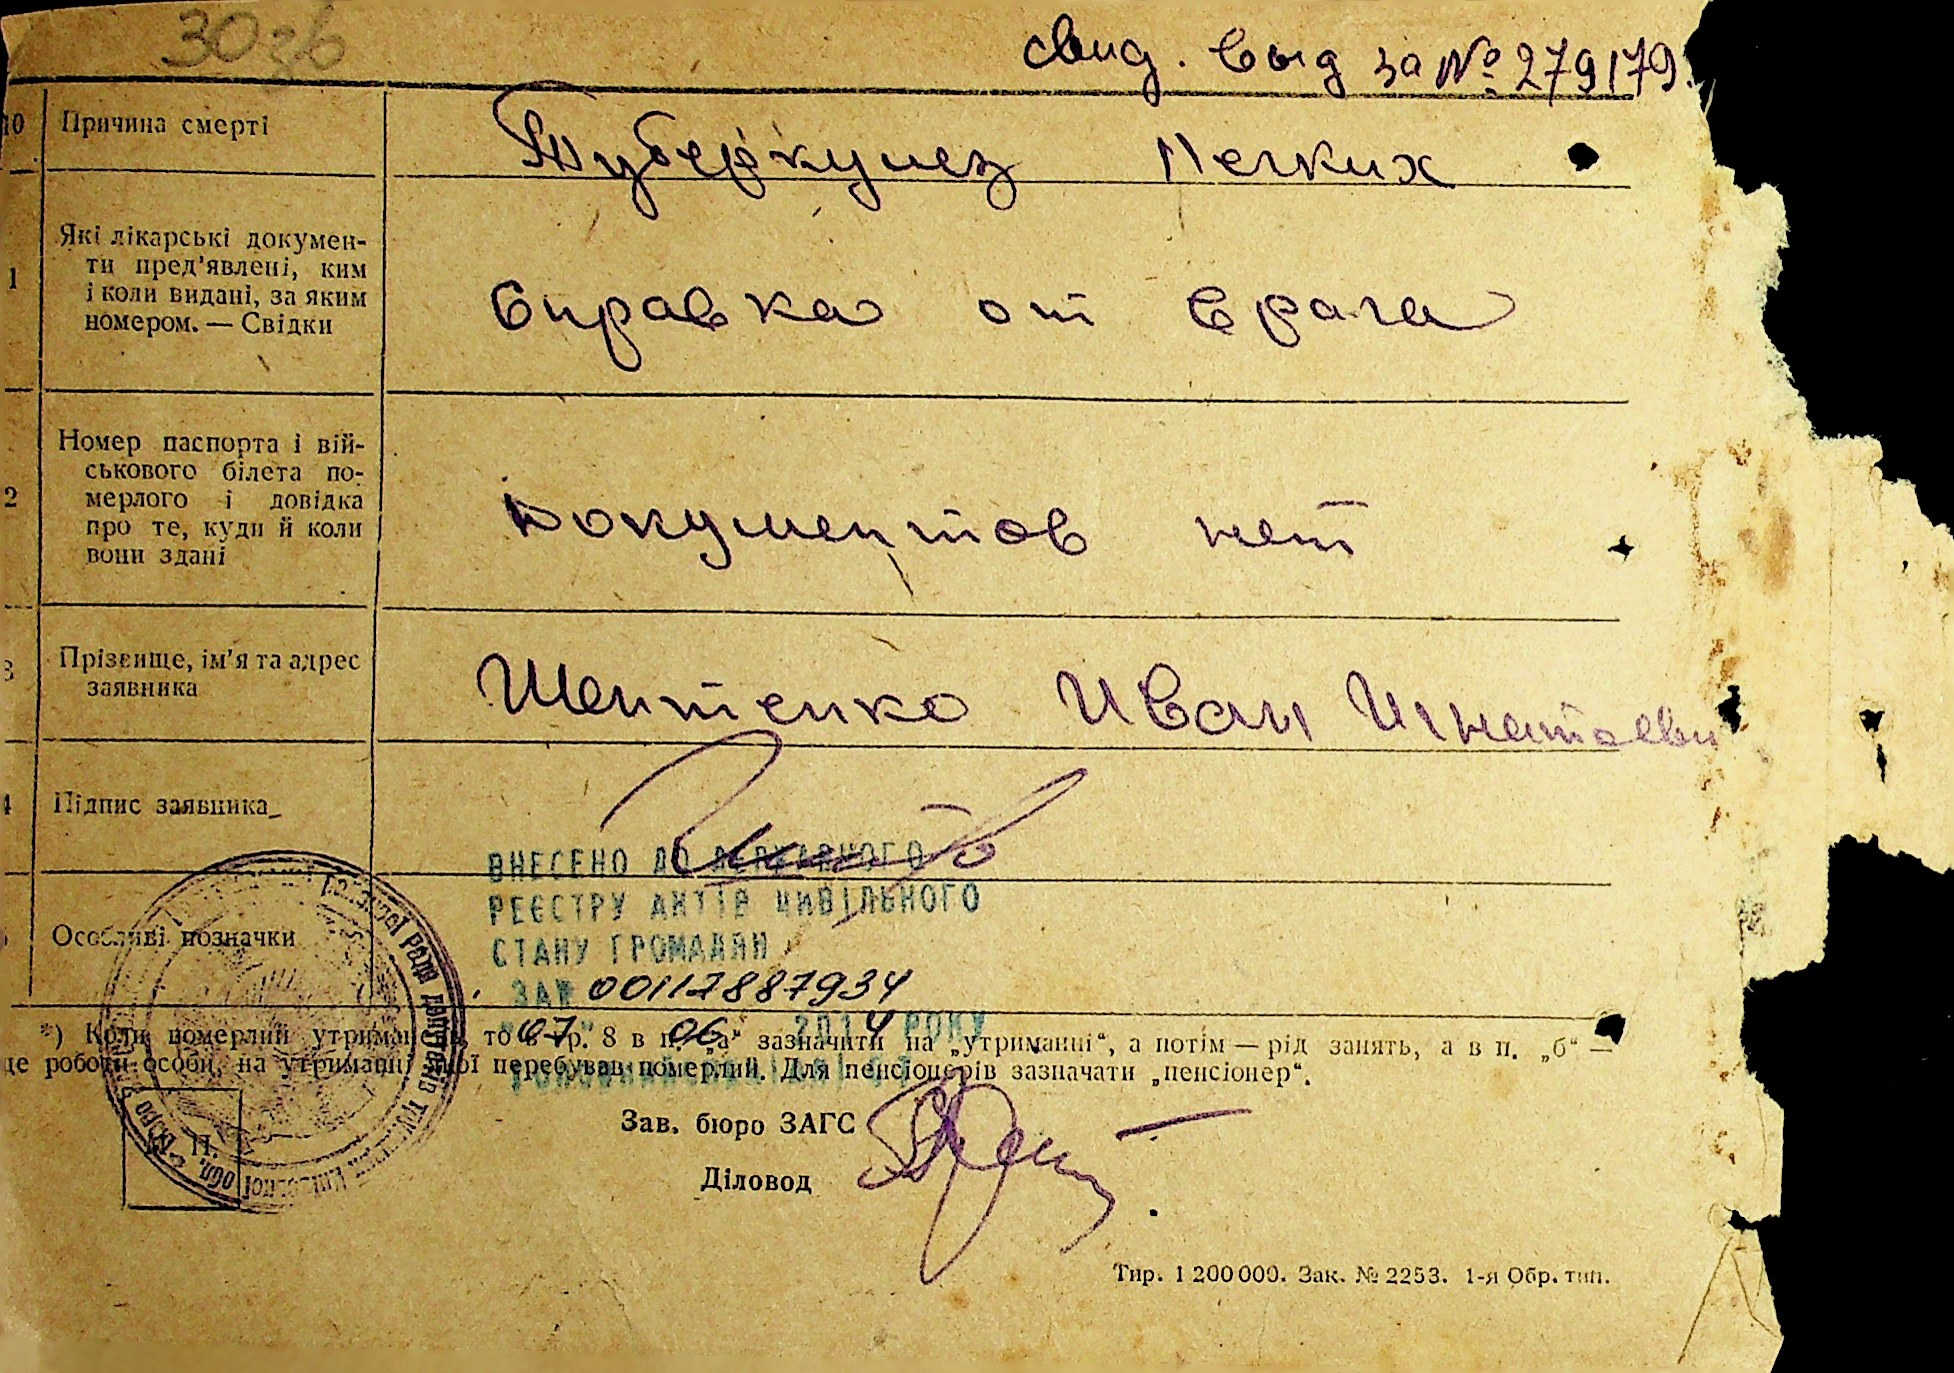 свид. выд за № 279179
10 Причина смерті
Туберкулез легких
Які лікарські докумен-
ти пред'явлені, ким
і коли видані, за яким
номером. — Свідки
1
Справка от врача
Номер паспорта і вій-
ськового білета по-
мерлого і довідка
про те, куди й коли
вони здані
2
Документов нет
3 Прізвище, ім'я та адрес
заявника
Иван Игнатьеви
4 Підпис заявника
ВНЕСЕНО ДО ДЕРЖАВНОГО
РЕЄСТРУ АКТІВ ЦИВІЛЬНОГО
СТАНУ ГРОМАДЯН
ЗА № 00117887934
Особливі позначки
"07" 06 2014 РОКУ
*) Коли померлий утриманець, то в гр. 8 в п. „а“ зазначити на „утриманні“, а потім — рід занять, а в п. „б“ —
це роботи особи, на утриманні якої перебував померлий. Для пенсіонерів зазначати „пенсіонер“.
Зав. бюро ЗАГС
М. П.
Діловод
Тир. 1 200 000. Зак. № 2253. 1-я Обр. тип.